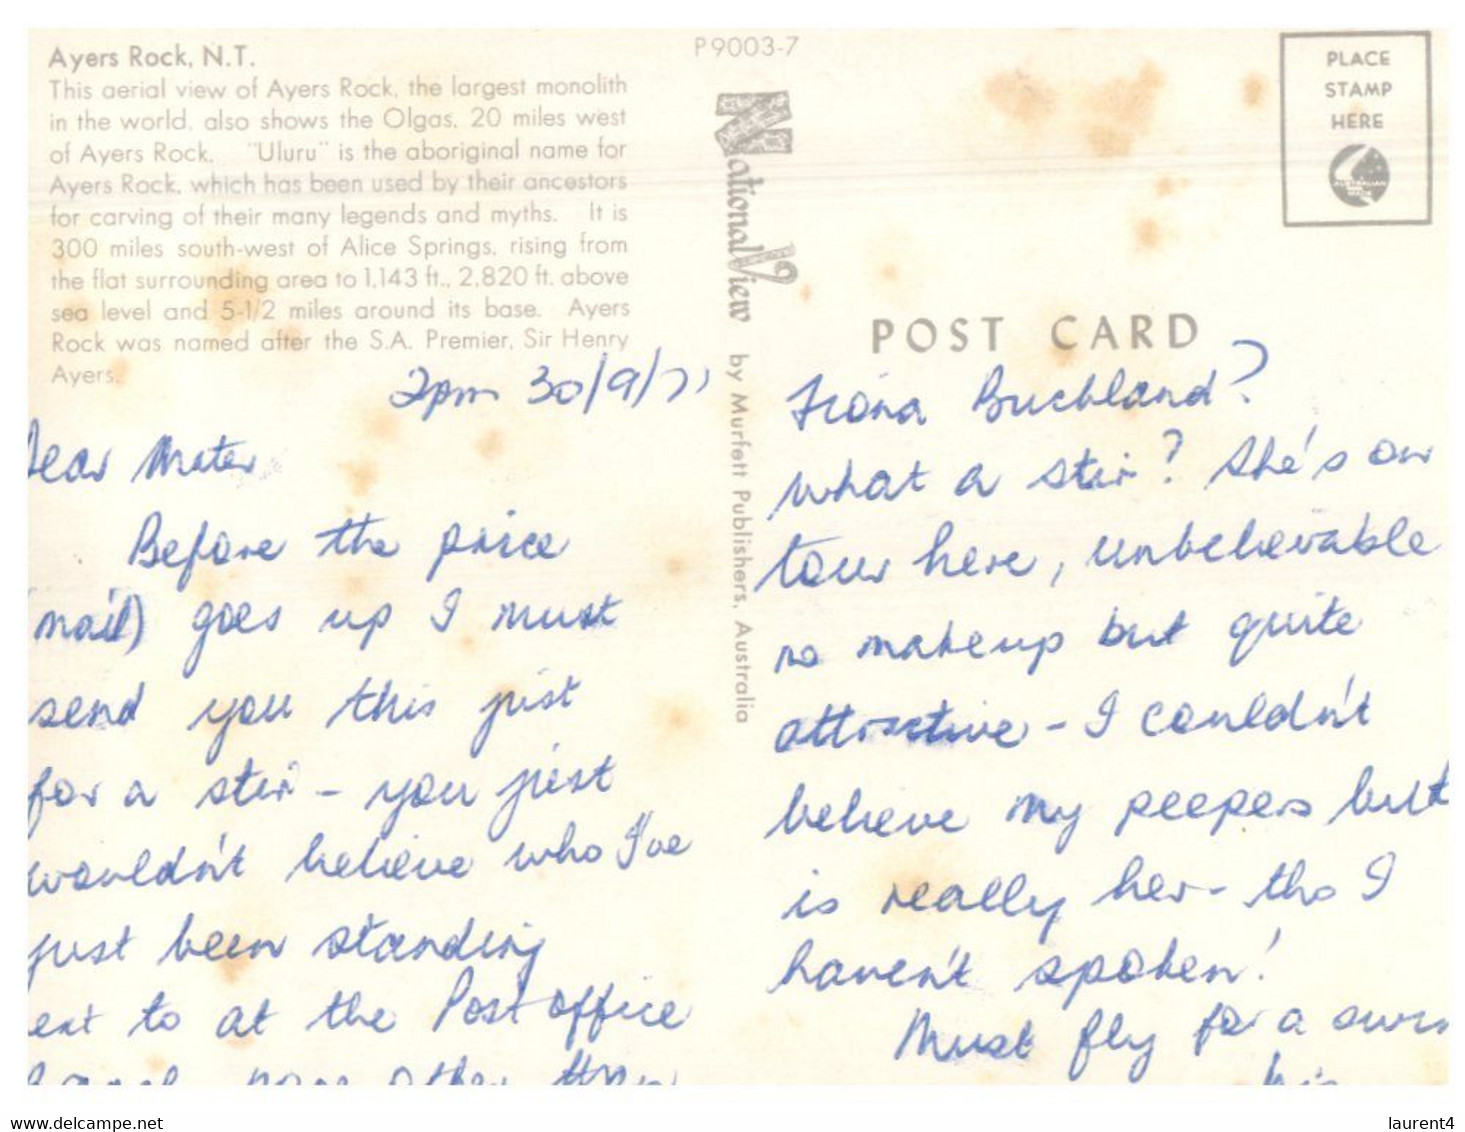 Ayers Rock, N.T.
This aerial view of Ayers Rock, the largest monolith
in the world, also shows the Olgas, 20 miles west
of Ayers Rock. "Uluru" is the aboriginal name for
Ayers Rock, which has been used by their ancestors
for carving of their many legends and myths. It is
300 miles south-west of Alice Springs, rising from
the flat surrounding area to 1,143 ft., 2,820 ft. above
sea level and 5-1/2 miles around its base. Ayers
Rock was named after the S.A. Premier, Sir Henry
Ayers.
2pm 30/9/71
Dear Mater
Before the price
(mail) goes up I must
send you this just
for a stir - you just
wouldn't believe who I've
just been standing
ext to at the Post office
none other than
P9003-7
National View by Murfett Publishers, Australia
PLACE
STAMP
HERE
POST CARD
Fiona Buckland?
what a stir? She's on
tour here, unbelievable
no makeup but quite
attractive - I couldn't
believe my peepers but
is really her - tho I
haven't spoken!
Must fly for a swim
laurent4